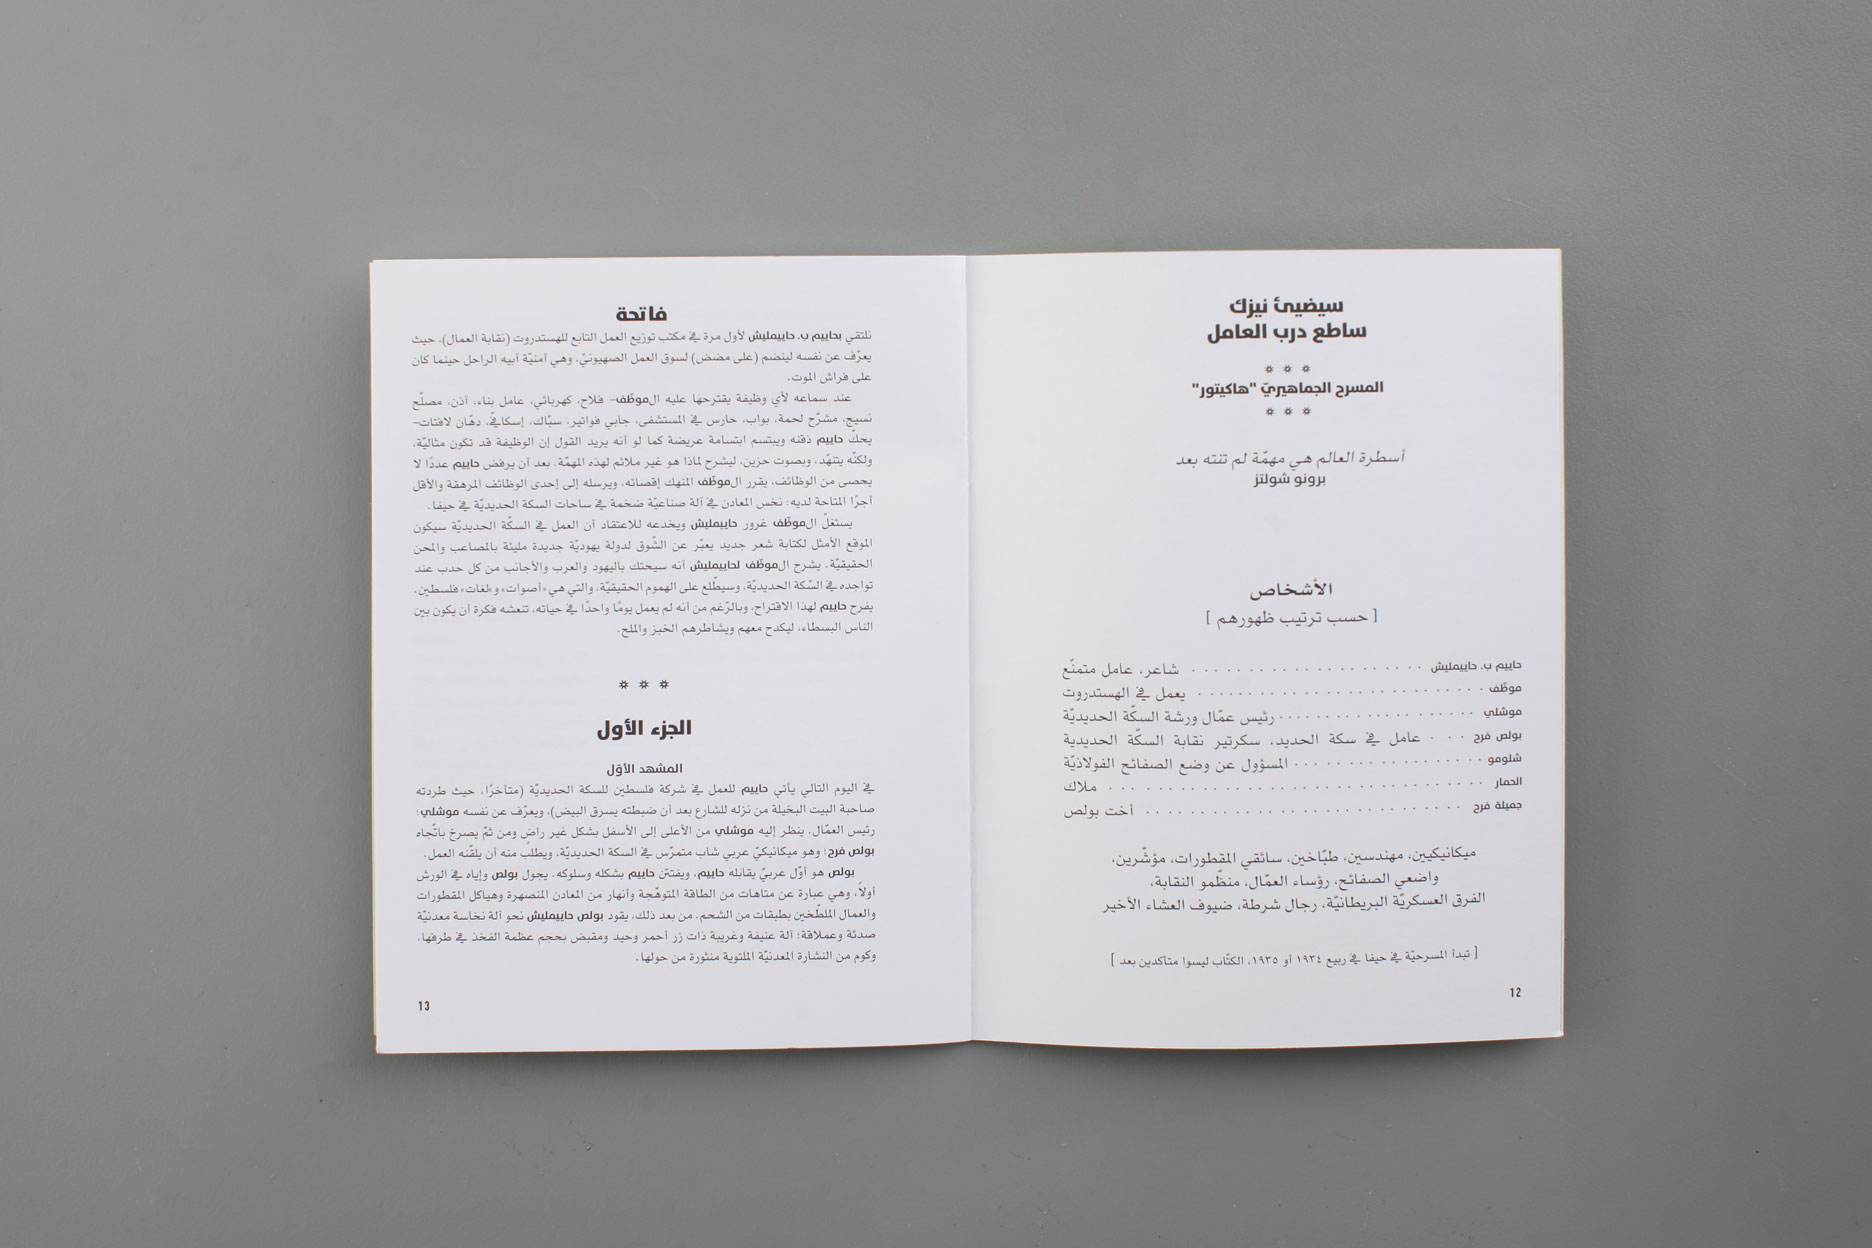 سيضيئ نيزك
ساطع درب العامل
المسرح الجماهيريّ "هاكيتور"
أسطرة العالم هي مهمّة لم تنته بعد
برونو شولتز
الأشخاص
[ حسب ترتيب ظهورهم ]
حاييم ب. حاييمليش . . . . . . . . . . . . . . . . . . . شاعر، عامل متمنّع
موظّف . . . . . . . . . . . . . . . . . . . . . . . يعمل في الهستدروت
موشلي . . . . . . . . . . . . . . . . رئيس عمّال ورشة السكّة الحديديّة
بولص فرح . . . عامل في سكة الحديد، سكرتير نقابة السكّة الحديدية
شلومو . . . . . . . . . . . . . . . المسؤول عن وضع الصفائح الفولاذيّة
الحمار . . . . . . . . . . . . . . . . . . . . . . . . . . . . . . . ملاك
جميلة فرح . . . . . . . . . . . . . . . . . . . . . . . . . . أخت بولص
ميكانيكيين، مهندسين، طبّاخين، سائقي المقطورات، مؤشّرين،
واضعي الصفائح، رؤساء العمّال، منظّمو النقابة،
الفرق العسكريّة البريطانيّة، رجال شرطة، ضيوف العشاء الأخير
[ تبدأ المسرحيّة في حيفا في ربيع ١٩٣٤ أو ١٩٣٥، الكتّاب ليسوا متأكدين بعد ]
12
فاتحة
نلتقي بحاييم ب. حاييمليش لأول مرة في مكتب توزيع العمل التابع للهستدروت (نقابة العمال)، حيث
يعرّف عن نفسه لينضم (على مضض) لسوق العمل الصهيونيّ، وهي أمنيّة أبيه الراحل حينما كان
على فراش الموت.
عند سماعه لأي وظيفة يقترحها عليه الموظّف– فلاح، كهربائي، عامل بناء، آذن، مصلّح
نسيج، مشرّح لحمة، بواب، حارس في المستشفى، جابي فواتير، سبّاك، إسكافيّ، دهّان لافتات–
يحكّ حاييم ذقنه ويبتسم ابتسامة عريضة كما لو أنه يريد القول إن الوظيفة قد تكون مثاليّة،
ولكنّه يتنهّد، وبصوت حزين، ليشرح لماذا هو غير ملائم لهذه المهمّة. بعد أن يرفض حاييم عددًا لا
يحصى من الوظائف، يقرر الموظّف المنهك إقصائه، ويرسله إلى إحدى الوظائف المرهقة والأقل
أجرًا المتاحة لديه: نخس المعادن في آلة صناعيّة ضخمة في ساحات السكة الحديديّة في حيفا.
يستغلّ الموظّف غرور حاييمليش ويخدعه للاعتقاد أن العمل في السكّة الحديديّة سيكون
الموقع الأمثل لكتابة شعر جديد يعبّر عن الشّوق لدولة يهوديّة جديدة مليئة بالمصاعب والمحن
الحقيقيّة. يشرح الموظّف لحاييمليش أنه سيحتك باليهود والعرب والأجانب من كل حدب عند
تواجده في السّكة الحديديّة، وسيطّلع على الهموم الحقيقيّة، والتي هي «أصوات» و«لغات» فلسطين.
يفرح حاييم لهذا الاقتراح، وبالرّغم من أنه لم يعمل يومًا واحدًا في حياته، تنعشه فكرة أن يكون بين
الناس البسطاء، ليكدح معهم ويشاطرهم الخبز والملح.
الجزء الأول
المشهد الأوّل
في اليوم التالي يأتي حاييم للعمل في شركة فلسطين للسكة الحديديّة (متأخرًا، حيث طردته
صاحبة البيت البخيلة من نزله للشارع بعد أن ضبطته يسرق البيض)، ويعرّف عن نفسه موشلي؛
رئيس العمّال. ينظر إليه موشلي من الأعلى إلى الأسفل بشكل غير راضٍ ومن ثمّ يصرخ باتّجاه
بولص فرح؛ وهو ميكانيكيّ عربي شاب متمرّس في السكة الحديديّة، ويطلب منه أن يلقّنه العمل.
بولص هو أوّل عربيّ يقابله حاييم، ويفتتن حاييم بشكله وسلوكه. يجول بولص وإياه في الورش
أولاً، وهي عبارة عن متاهات من الطاقة المتوهّجة وأنهار من المعادن المنصهرة وهياكل المقطورات
والعمال الملطّخين بطبقات من الشحم. من بعد ذلك، يقود بولص حاييمليش نحو آلة نخاسة معدنيّة
صدئة وعملاقة؛ آلة عنيفة وغريبة ذات زر أحمر وحيد ومقبض بحجم عظمة الفخذ في طرفها،
وكوم من النشارة المعدنيّة الملتوية منثورة من حولها.
13